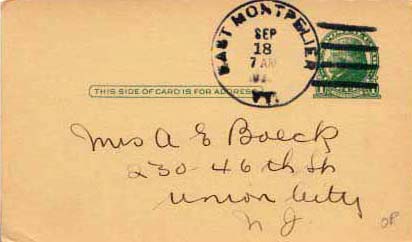 EAST MONTPELIER
SEP
18
7 AM
VT.
THIS SIDE OF CARD IS FOR ADDRESS
Mrs A E Boeck
230-46th St
Union City
N J.